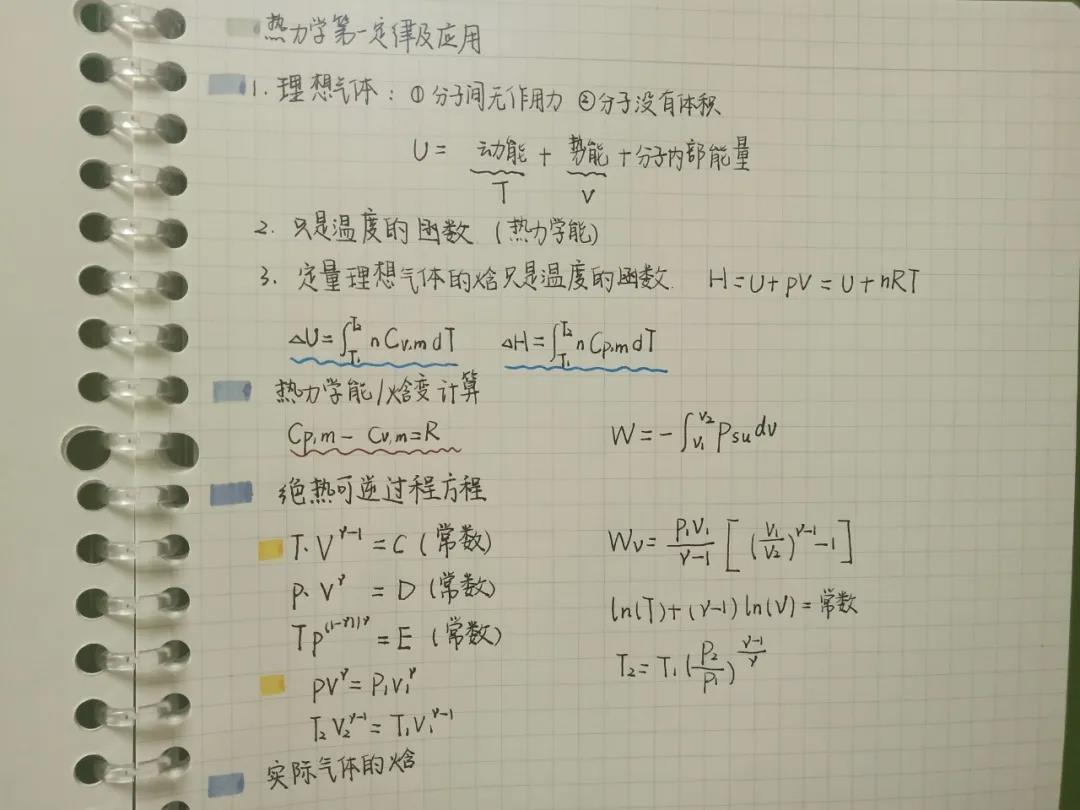 热力学第一定律及应用
1. 理想气体：① 分子间无作用力 ②分子没有体积
U = 动能 + 势能 + 分子内部能量
T V
2. 只是温度的函数 (热力学能)
3. 定量理想气体的焓只是温度的函数. H=U+pV=U+nRT
△U=∫_{T₁}^{T₂} n Cv,m dT △H=∫_{T₁}^{T₂} n Cp,m dT
热力学能/焓变计算
Cp,m - Cv,m=R W=-∫_{V₁}^{V₂} Psu dv
绝热可逆过程方程
T·V^{γ-1} = C (常数) Wv= \frac{P₁V₁}{γ-1} [(\frac{V₁}{V₂})^{γ-1}-1]
p·V^γ = D (常数) ln(T)+(γ-1) ln(V)=常数
Tp^{(1-γ)/γ} = E (常数) T₂=T₁(\frac{P₂}{P₁})^{\frac{γ-1}{γ}}
PV^γ=P₁V₁^γ
T₂V₂^{γ-1}=T₁V₁^{γ-1}
实际气体的焓